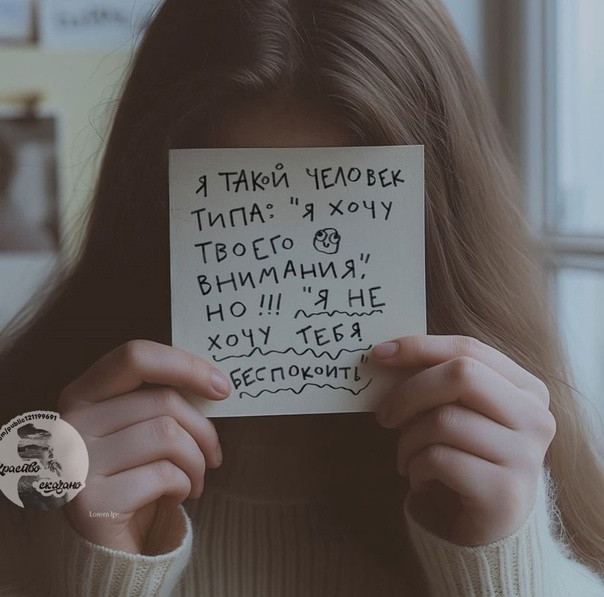 Я ТАКОЙ ЧЕЛОВЕК
ТИПА: "Я ХОЧУ
ТВОЕГО
ВНИМАНИЯ",
НО !!! "Я НЕ
ХОЧУ ТЕБЯ
БЕСПОКОИТЬ"
m/public121199691
Красиво
сказано
Lorem Ip